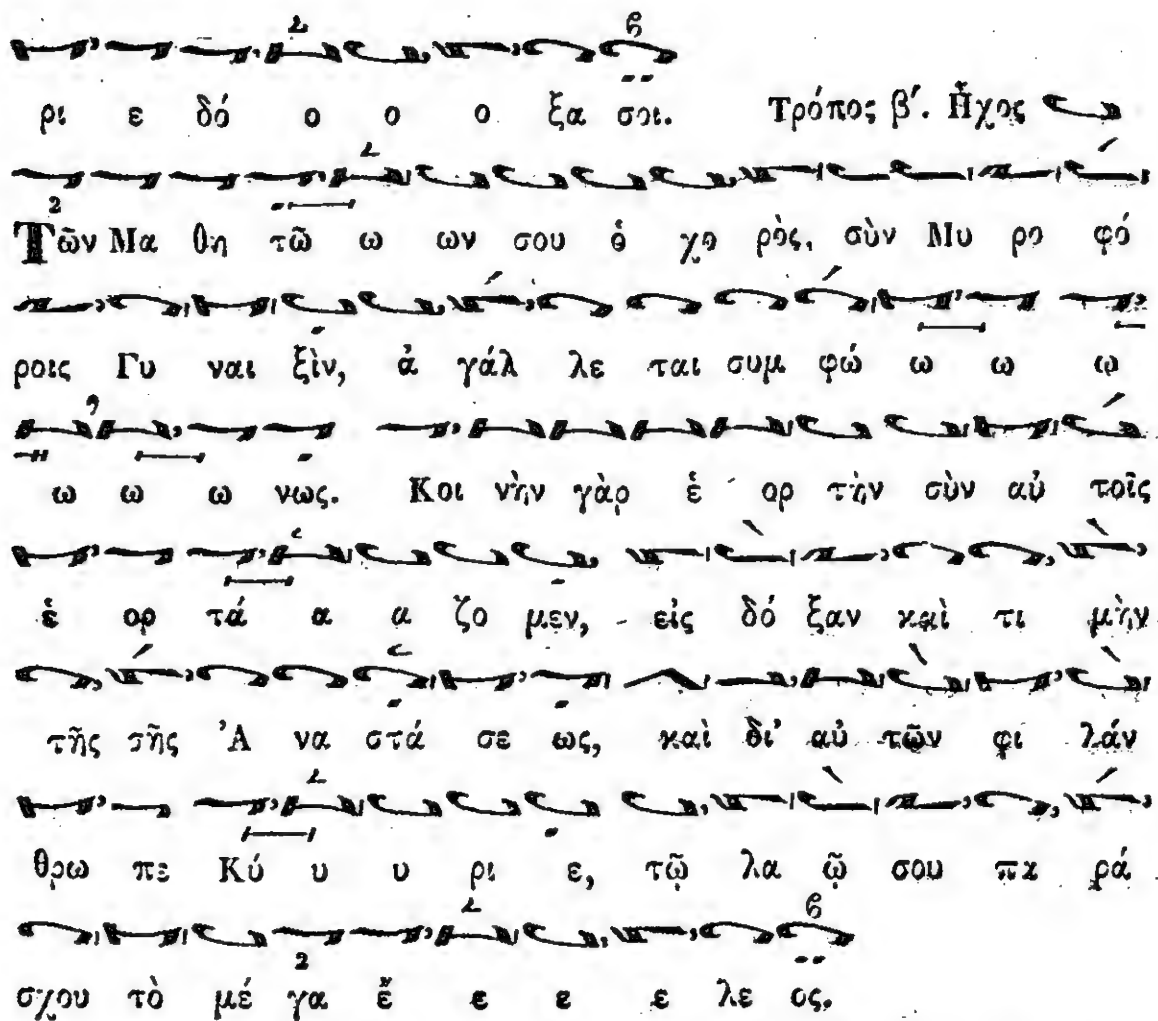 ρι ε δό ο ο ο ξα σοι. Τρόπος β'. Ἦχος
Τῶν Μα θη τῶ ω ων σου ὁ χο ρὸς, σὺν Μυ ρο φό
ροις Γυ ναι ξὶν, ἀ γάλ λε ται συμ φώ ω ω ω
ω ω ω νως. Κοι νὴν γὰρ ἑ ορ τὴν σὺν αὐ τοῖς
ἑ ορ τά α α ζο μεν, εἰς δό ξαν καὶ τι μὴν
τῆς σῆς Ἀ να στά σε ως, καὶ δι' αὐ τῶν φι λάν
θρω πε Κύ υ υ ρι ε, τῷ λα ῷ σου πα ρά
σχου τὸ μέ γα ἔ ε ε ε λε ος.